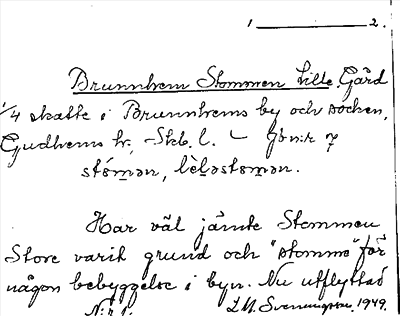 1 2.
Brunnhem Stommen Lille Gård
1/4 skatte i Brunnhems by och socken,
Gudhems hr, Skb. l. — Jb nr 7
stómən, lèləstomən.
Har väl jämte Stommen
Store varit grund och "stomme" för
någon bebyggelse i byn. Nu utflyttad
L. M. Svenungsson. 1949.